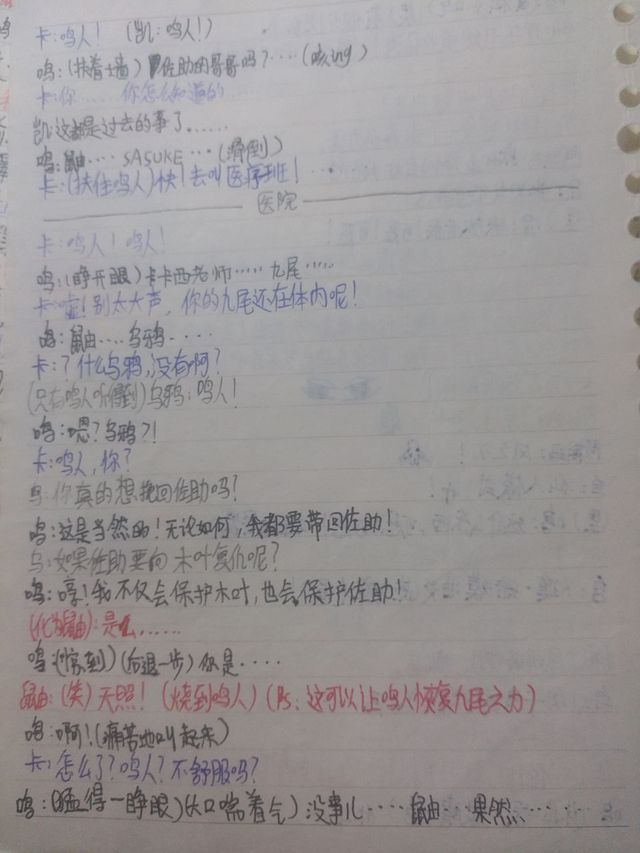 卡：鸣人！（凯：鸣人！）
鸣：（扶着墙）佐助的哥哥吗？····（咳ing）
卡：你······你怎么知道的····
凯：这都是过去的事了······
鸣：鼬···· SASUKE ···（滑倒）
卡：（扶住鸣人）快！去叫医疗班！···
医院
卡：鸣人！鸣人！
鸣：（睁开眼）卡卡西老师·····九尾·····
卡：嘘！别太大声，你的九尾还在体内呢！
鸣：鼬····乌鸦·····
卡：？什么乌鸦，没有啊？
（只有鸣人听得到）乌鸦：鸣人！
鸣：嗯？乌鸦？！
卡：鸣人，你？
乌：你真的想挽回佐助吗！
鸣：这是当然的！无论如何，我都要带回佐助！
乌：如果佐助要向木叶复仇呢？
鸣：哼！我不仅会保护木叶，也会保护佐助！
（化为鼬）：是么······
鸣：（惊到）（后退一步）你是····
鼬：（笑）天照！（烧到鸣人）（Ps：这可以让鸣人恢复九尾之力）
鸣：啊！（痛苦地叫起来）
卡：怎么了？鸣人？不舒服吗？
鸣：（猛得一睁眼）（大口喘着气）没事儿····鼬 果然······